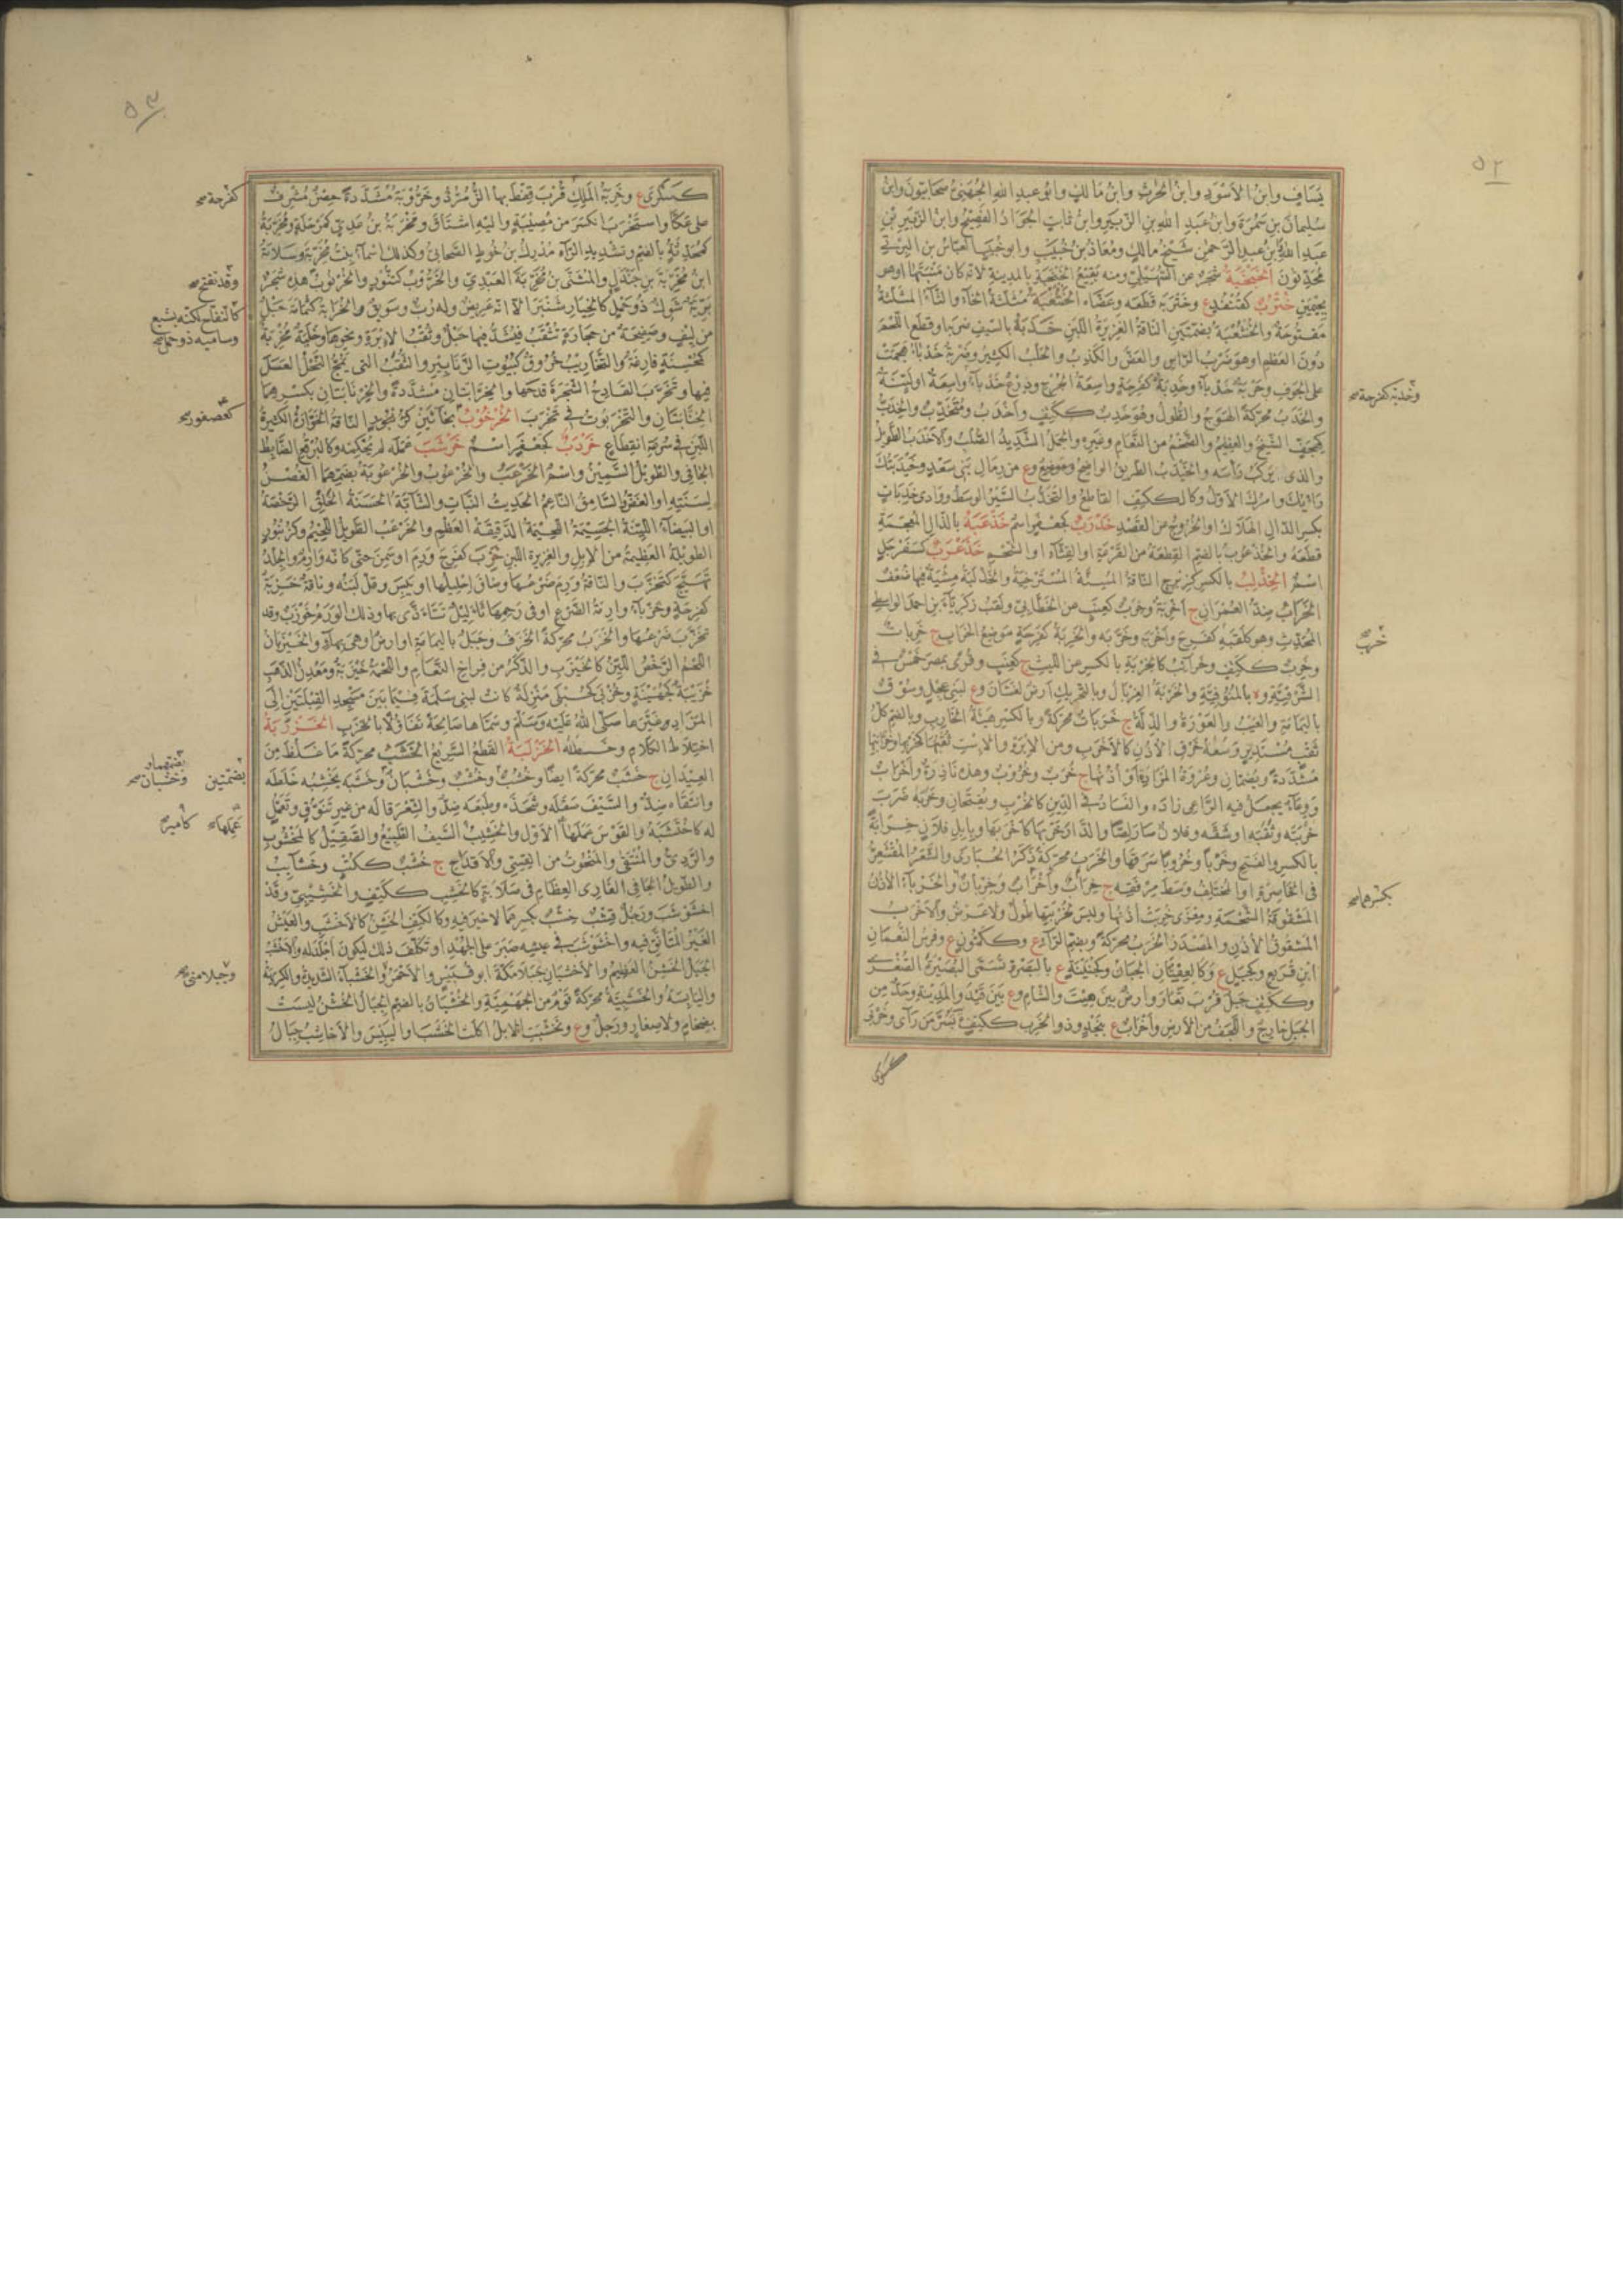 ٥٢
يَسَافٍ وابنُ الأَسْوَدِ وابنُ الحُرثِ وابنُ مَالكٍ وابُو عبدِ اللهِ الجُهَنىُّ صَحَابيّونَ وابنُ
سُليمانَ بنِ سَمُرَةَ وابنُ عَبدِ اللهِ بنِ الزُّبَيرِ وابنُ ثابتٍ الجَوَادُ الفَصِيحُ وابنُ الزُّبَيرِ بْنِ
عَبدِ اللهِ وابنُ عبدِ الرَّحمنِ شَيْخُ مالكٍ ومُعَاذُ بنُ خُبَيْبٍ وابو خُبَيْبٍ العبّاسُ بن البِرْتىِّ
مُحَدِّثُونَ الخَبْخَبَةُ شَجَرٌ عن السُّهَيْلِىِّ ومنه بَقِيعُ الخَبْخَبَةِ بالمدِينةِ لأنّه كانَ مَنْبَتَهَا او هو
بجِيمَيْنِ خُتْرُبٌ كقُنْفُذٍ ع وخَتْرَبَه قَطَعَه وعَضَّاه الخُنْثَعْبَةُ مُثَلَّثَةُ الخآءِ والثّآءُ المثلّثةُ
مَفْتُوحَةٌ والخُنْثُعْبَةُ بضَمَّتَيْنِ النّاقةُ الغَزِيرَةُ اللّبَنِ خَدَبَهُ بالسّيفِ ضَرَبَه او قَطَعَ اللّحْمَ
دُونَ العَظْمِ او هو ضَرْبُ الرّأسِ والعَضُّ والكَذِبُ والحَلْبُ الكثيرُ وضَرْبَةٌ خَدْبآءُ هَجَمَتْ
على الجَوفِ وحَرْبَةٌ خَدْبآءُ وخَدِبَةٌ كفَرِحَةٍ واسِعَةُ الجُرْحِ ودِرْعٌ خَدْبآءُ واسِعَةٌ او لَيِّنَةٌ
والخَدَبُ محرّكةً الهَوَجُ والطُّولُ وهو خَدِبٌ ككَتِفٍ واَخْدَبُ ومُتَخَدِّبٌ والخِدَبُّ
كهِجَفٍّ الشّيْخُ والعظِيمُ والضّخْمُ من النَّعَامِ وغيرِه والجَمَلُ الشّدِيدُ الصُّلْبُ والأَخْدَبُ الطّوِيلُ
والذى يَرْكَبُ رَأسَه والخَيْدَبُ الطّرِيقُ الواضِحُ وموضِعٌ وع من رِمالِ بَنِى سَعْدٍ وخَيْدَبَتُكَ
رَأيُكَ وامرُكَ الأوّلُ وكالكَتِفِ القاطِعُ والتَّخَدُّبُ السّيْرُ الوسَطُ ووادِى خَدِبَاتٍ
بكسرِ الدّالِ الهَلاكُ او الخُرُوجُ عن القَصْدِ خَذْرَبٌ كجعْفَرٍ اسمٌ خَذْعَبَهُ بالذّالِ المعجمةِ
قطَعَهُ والخُذْعُوبَةُ بالضّمِ القِطْعَةُ من القَرْعَةِ او القِثّآءِ او الشّحْمِ خَذَعْرَبٌ كسَفَرْجَلٍ
اسمٌ الخِذْلِبُ بالكسرِ كزِبْرِجٍ النّاقةُ المُسِنَّةُ المُسْتَرْخِيَةُ والخَذْلَبَةُ مِشْيَةٌ فيها ضَعْفٌ
الخَرَابُ ضِدُّ العُمْرَانِ ج اَخْرِبَةٌ وخِرَبٌ كعِنَبٍ عن الخَطَّابِىِّ ولَقَبُ زَكَرِيّاءَ بنِ احمدَ الواسِطِىِّ
المُحَدِّثِ وهو كلَقَبِه كفَرِحَ وأخْرَبَه وخَرَّبَه والخَرِبَةُ كفَرِحَةٍ مَوْضِعُ الخَرَابِ ج خَرِبَاتٌ
وخَرِبٌ ككَتِفٍ وخَرَائِبُ كالخِرْبَةِ بالكسرِ عن الليثِ ج كعِنَبٍ وقُرًى بمصرَ خَمْسٌ فى
الشّرْقِيّةِ و ه بالمُنُوفِيَّةِ والخَرْبَةُ الغِرْبَالُ وبالتّحرِيكِ اَرضٌ لغَسّانَ و ع لبَنِى عِجْلٍ وسُوقٌ
باليَمامَةِ والعَيْبُ والعَوْرَةُ والذِّلَّةُ ج خَرَبَاتٌ محرّكةً وبالكسرِ هَيْئَةُ الخارِبِ وبالضّمِ كلُّ
ثَقْبٍ مُسْتَدِيرٍ وسَعَةُ خَرْقِ الأُذُنِ كالأَخْرَبِ ومن الإِبْرَةِ والإِسْتِ ثَقْبُهَا كخُرْبِهَا وخُرَّابَتِهَا
مُشَدَّدَةً ويُضَمّانِ وعُرْوَةُ المَزَادَةِ او اُذُنُهَا ج خُرَبٌ وخُرُوبٌ وهذه نَادِرَةٌ واَخْرَابٌ
ووِعَآءٌ يجعَلُ فيه الرّاعِى زادَه والفَسَادُ فى الدِّينِ كالخُرْبِ ويُفتَحانِ وخَرَبَه ضَرَبَ
خُرْبَتَه وثَقَبَه او شَقَّه وفلانٌ صارَ لِصًّا والدّارَ خَرَّبَهَا كأخْرَبَهَا وبابِلِ فلانٍ خِرَابَةً
بالكسرِ والفَتحِ وخَرْبًا وخُرُوبًا سَرَقَهَا والخَرَبُ محرّكةً ذَكَرُ الحُبَارَى والشَّعَرُ المُقْشَعِرُّ
فى الخاصِرَةِ او المُختَلِفُ وَسَطَ مِرْفَقِه ج خِرَابٌ واَخْرَابٌ وخِرْبَانٌ والخَرْبآءُ الأُذُنُ
المَشْقُوقَةُ الشّحْمَةِ ومِعْزًى خُرِبَتْ اُذُنُهَا وليسَ لخُرْبَتِهَا طُولٌ ولا عَرْضٌ والأَخْرَبُ
المَشقُوقُ الأُذُنِ والمَصْدَرُ الخَرَبُ محرّكةً وبضَمِّ الرّآءِ ع وككَتِفٍ ع وفرسُ النُّعمانِ
ابْنِ قُرَيْعٍ وكجَبَلٍ ع وكالعِفِتّانِ الجَبَانُ وكجُهَيْنَةَ ع بالبَصْرَةِ تُسَمَّى البُصَيْرَةَ الصُّغْرَى
وككَتِفٍ جَبَلٌ قُرْبَ تِعَارَ وارضٌ بينَ هِيتَ والشّامِ و ع بَيْنَ فَيْدَ والمَدِينةِ وحَدٌّ من
الجَبَلِ خارِجٌ واللَّجَفُ من الأرضِ واَخْرَابٌ ع بنَجْدٍ وذو الخَرِبِ ككَتِفٍ بسُرَّ مَن رَاَى وخَرْبَى
وخَدِبَة كفرحة صح
خَرِبٌ
بكسرهما صح
٥٣
كسَكْرَى ع وخَرِبَةُ المَلِكِ قُرْبَ قِفْطَ بها الزُّمُرُّدُ وخَرُّوبَةُ مُشَدَّدَةً حِصْنٌ مُشْرِفٌ
على عَكّا واستَخْرَبَ انكسَرَ من مُصِيبَةٍ واليهِ اشتَاقَ ومَخْرَبَةُ بنُ عَدِىٍّ كمَرْحَلَةٍ ومُخَرِّبَةُ
كمُحَدِّثَةٍ بالضّمِ وتشدِيدِ الرّاءِ مُدْرِكُ بنُ خُوطٍ الصّحابِىُّ وكذلك اَسْمَآءُ بنتُ مُخَرِّبَةَ وسَلامَةُ
ابنُ مُخَرِّبَةَ بنِ جَنْدَلٍ والمُثَنَّى بنُ مُخَرِّبَةَ العَبْدِى والخَرُّوبُ كتَنُّورٍ والخُرْنُوبُ هذه شَجَرٌ
بَرِّيَّةٌ شَوِكٌ ذو حَمْلٍ كالخِيَارِ شَنْبَرَ الاّ انّه عَرِيضٌ وله رُبٌّ وسَوِيقٌ والخُرَابَةُ كثُمَامَةٍ حَبْلٌ
من لِيفٍ وصَفِيحَةٌ من حِجارَةٍ تُثْقَبُ فيُشَدُّ فيها حَبْلٌ وثَقْبُ الإِبْرَةِ ونحوِها وخَلِيَّةٌ مُخْرِبَةٌ
كمُحْسِنَةٍ فارِغَةٌ والنَّخَارِيبُ خُرُوقٌ كبُيُوتِ الزَّنَابِيرِ والثُّقَبُ التى تَمُجُّ النّحْلُ العَسَلَ
فيها وتَخَرَّبَ القادِحُ الشّجَرَةَ قَدَحَهَا والخُرَّابَتَانِ مُشَدَّدَةً والخِرْنَابَتَانِ بكسرِهما
الخِنّابَتَانِ والتَّخْرَبُوتُ فى تَخْرَبَ الخُرْخُوبُ بخآئَيْنِ كعُصفورٍ النّاقةُ الخَوّارَةُ الكثِيرَةُ
اللّبَنِ فى سُرعةِ انقِطَاعٍ خَرْدَبٌ كجَعْفَرٍ اسمٌ خَرْشَبَ عَمَلَه لم يُحْكِمْه وكالبُرْقُعِ الضّابِطُ
الجَافِى والطّوِيلُ السّمِينُ واسمٌ الخَرْعَبُ والخُرْعُوبُ والخُرْعُوبَةُ بضَمِّهِما الغُصْنُ
لسَنَتِهِ او الغَضُّ والسّامِقُ النّاعِمُ الحَدِيثُ النّباتِ والشّابَّةُ الحَسَنَةُ الخَلْقِ الرَّخْصَةُ
او البَيْضَآءُ اللَّيِّنَةُ الجَسِيمَةُ اللّحِيمَةُ الدَّقِيقَةُ العَظْمِ والخَرْعَبُ الطّوِيلُ اللّحِيمُ وكزُنْبُورٍ
الطّوِيلةُ العَظِيمةُ من الإبِلِ والغَزِيرَةُ اللّبَنِ خَزِبَ كفَرِحَ وَرِمَ او سَمِنَ حتّى كأنّه وَارِمٌ والجِلْدُ
تَهَيَّجَ كتَخَزَّبَ والنّاقَةُ وَرِمَ ضَرْعُهَا وضَاقَ اِحْلِيلُهَا او يَبِسَ وقَلَّ لَبَنُه وناقةٌ خَزِبَةٌ
كفَرِحَةٍ وخَزْبآءُ وارِمَةُ الضَّرْعِ او فى رَحِمِها ثَآلِيلُ تَتَأَذَّى بها وذلك الوَرَمُ خَوْزَبٌ وقد
تخَزَّبَ ضَرْعُهَا والخَزَبُ محرّكةً الخَزَفُ وجَبَلٌ باليَمامَةِ او ارضٌ وهى بهآءٍ والخَيْزَبَانُ
اللّحمُ الرَّخْصُ اللَّيِّنُ كالخَيْزَبِ والذّكَرُ من فِراخِ النَّعَامِ واللّحْمَةُ خَيْزَبَةٌ ومَعْدِنُ الذّهَبِ
خُزَيْبَةٌ كجُهَيْنَةَ وخَزْبَى كحُبْلَى مَنْزِلَةٌ كانت لبَنِى سَلِمَةَ فيما بَيْنَ مَسْجِدِ القِبْلَتَيْنِ الَى
المَزَادِ وغَيَّرَها صَلّى اللهُ عَلَيْهِ وَسَلّمَ وسَمَّاها صَالِحَةَ تَفَاؤُلًا بالخَزَبِ الخَزْرَبَةُ
اختِلاطُ الكلامِ وخَطَلُه الخَزْلَبَةُ القَطْعُ السّرِيعُ الخَشَبُ محرّكةً ما غَلُظَ مِنَ
العِيدَانِ ج خَشَبٌ محرّكةً ايضًا وخُشُبٌ وخُشْبٌ وخُشْبَانٌ وخَشَبَه يَخْشِبُه خَلَطَه
وانتَقَاه ضِدٌّ والسّيْفَ صَقَلَه وشَحَذَه وطَبَعَه ضِدٌّ والشِّعْرَ قالَه من غيرِ تَنَوُّقٍ وتَعَمُّلٍ
له كاختَشَبَهُ والقَوْسَ عَمِلَهَا الأوّلَ والخَشِيبُ السّيفُ الطَّبِيعُ والصَّقِيلُ كالمَخْشُوبِ
والرَّدِىءُ والمُنْتَقَى والمَنْحُوتُ من القِسِىِّ والأَقْدَاحِ ج خُشُبٌ ككُتُبٍ وخَشَائِبُ
والطّوِيلُ الجَافِى العَارِى العِظَامِ فى صَلابَةٍ كالخَشِبِ ككَتِفٍ والخَشِيبِىِّ وقد
اخْشَوْشَبَ ورَجُلٌ قِشْبٌ خِشْبٌ بكسرِهِما لا خيرَ فيه وكالكَتِفِ الخَشِنُ كالأَخْشَبِ والعَيْشُ
الغَيْرُ المُتَأَنَّقِ فيه واخشَوْشَبَ فى عيشِه صَبَرَ على الجَهْدِ او تَكلّفَ ذلك ليكونَ اَجْلَدَ له والأَخْشَبُ
الجَبَلُ الخَشِنُ العَظِيمُ والأَخْشَبَانِ جَبَلا مَكّةَ ابو قُبَيْسٍ والأَحْمَرُ والخَشْبآءُ الشّدِيدَةُ والكَرِيهَةُ
واليَابِسَةُ والخَشَبِيَّةُ محرّكةً قَومٌ من الجَهْمِيَّةِ والخُشْبَانُ بالضّمِ الجِبَالُ الخُشْنُ لَيسَتْ
بضِخَامٍ ولا صِغَارٍ ورَجُلٌ و ع وتَخَشَّبَتِ الإبلُ اكلَتِ الخَشَبَ او اليَبِيسَ والأَخَاشِبُ جِبَالُ
كفرحة صح
وقد تفتح صح
كالتفاح لكنّه بشع
وشامية ذو حمل صح
كعصفور صح
بضمتين
وخشبان صح
عَمِلَها
كأمير
وجبلا منى صح